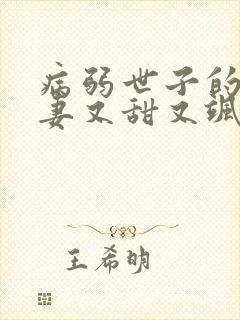 病弱世子的
妻又甜又飒
王希明